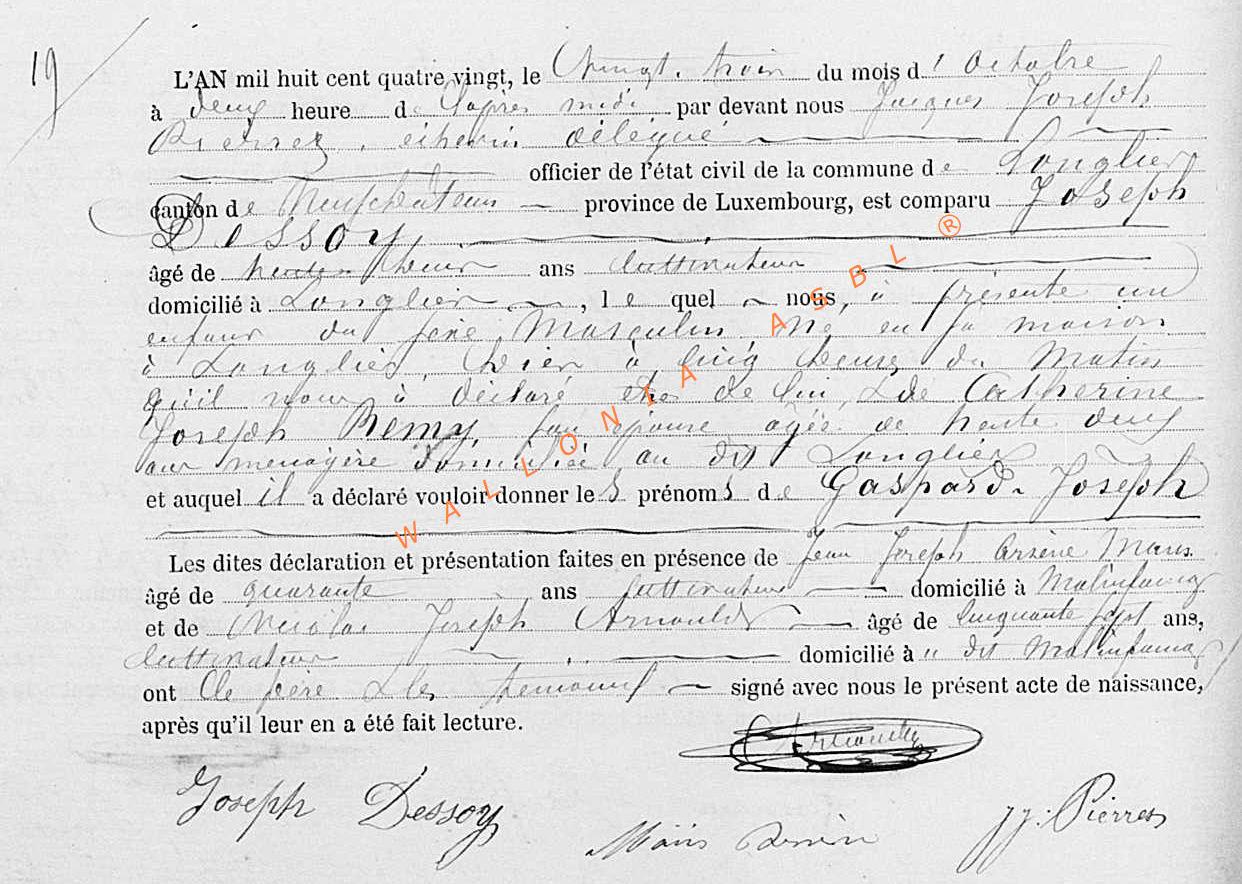 19
L'AN mil huit cent quatre vingt, le Vingt trois du mois d'Octobre
à deux heure de l'après midi par devant nous Jacques Joseph
Pierrez, échevin délégué
officier de l'état civil de la commune de Longlier
canton de Neufchâteau province de Luxembourg, est comparu Joseph
Dessoy,
âgé de deux ans cultivateur
domicilié à Longlier, le quel nous, à présenté un
enfant du sexe Masculin Né en sa maison
à Longlier, hier à cinq heures du Matin
qu'il nous à déclaré être de lui, & de Catherine
Joseph Remy, son épouse agée de trente deux
ans ménagère domiciliée au dit Longlier
et auquel il a déclaré vouloir donner les prénoms de Gaspard-Joseph
Les dites déclaration et présentation faites en présence de Jean Joseph Arsène Maus
âgé de quarante ans cultivateur domicilié à Molinfaing
et de Nicolas Joseph Arnould âgé de cinquante sept ans,
cultivateur domicilié à u dit Molinfaing
ont le père & les témoins signé avec nous le présent acte de naissance,
après qu'il leur en a été fait lecture.
Arnould
Joseph Dessoy
JJ. Pierrez
WALLONIA ASBL ®